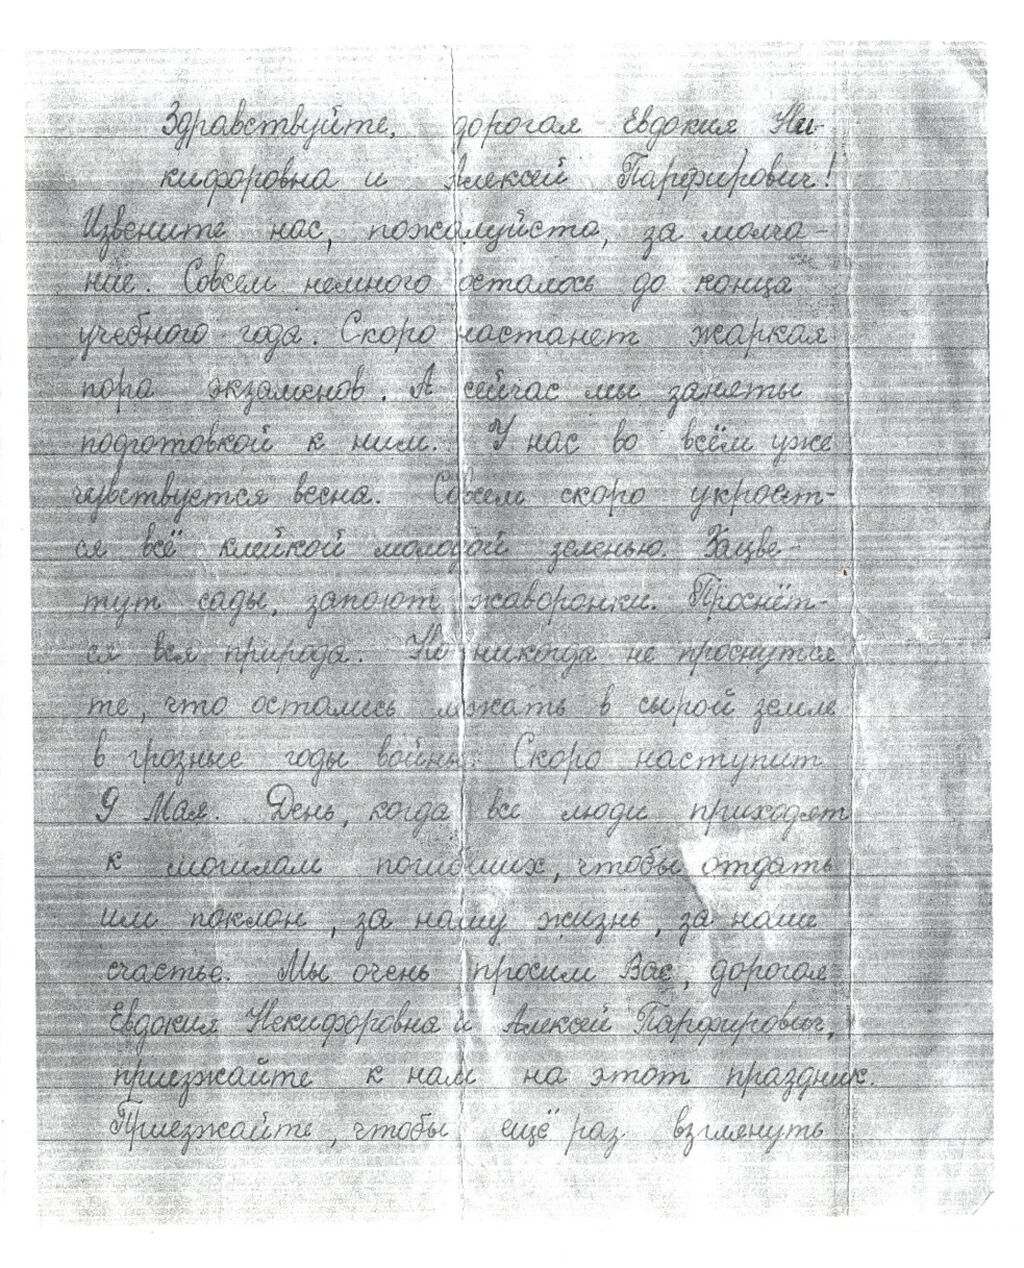 Здравствуйте, дорогая Евдокия Ни-
кифоровна и Алексей Парфирович!
Извените нас, пожалуйста, за молча-
ние. Совсем немного осталось до конца
учебного года. Скоро настанет жаркая
пора экзаменов. А сейчас мы заняты
подготовкой к ним. У нас во всём уже
чувствуется весна. Совсем скоро укроет-
ся всё клейкой молодой зеленью. Зацве-
тут сады, запоют жаворонки. Проснёт-
ся вся природа. Но никогда не проснутся
те, что остались лежать в сырой земле
в грозные годы войны. Скоро наступит
9 Мая. День, когда все люди приходят
к могилам погибших, чтобы отдать
им поклон, за нашу жизнь, за наше
счастье. Мы очень просим Вас, дорогая
Евдокия Некифоровна и Алексей Парфирович,
приезжайте к нам на этот праздник.
Приезжайте, чтобы ещё раз взглянуть